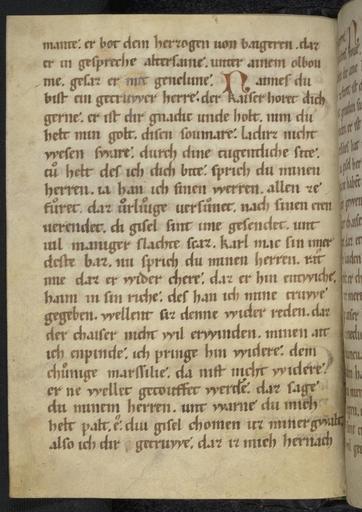 mante. er bot dem herzogen uon baigeren. daz
er in gespreche altersaine. unter ainem olbou
me. gesaz er mit genelune. Naimes du
bist ein getruwer herre. der kaiser horet dich
gerne. er ist dir gnadic unde holt. nim du
helt min golt. disen soumare. ladirz nicht
wesen sware. durch dine tugentliche site.
tuͦ helt des ich dich bite. sprich du minen
herren. ia han ich sinen werren. allen ze
fuͦret. daz uͦrliuge uersuͦnet. nach sinen eren
uerendet. di gisel sint ime gesendet. unt
uil maniger slachte scaz. karl mac sin imer
deste baz. nu sprich du minen herren. rat
ime daz er wider chere. daz er hin entwiche.
haim in sin riche. des han ich mine truwe
gegeben. wellent siz denne wider reden. daz
der chaiser nicht wil erwinden. minen ait
ich enpinde. ich pringe hin widere. dem
chuͦnige marssilie. da nist nicht widere.
er ne wellet getouffet werde. daz sage
du minem herren. unt warne du mich
helt palt. e. diu gisel chomen uz miner gwalt.
also ich dir getruwe. daz iz mich hernach